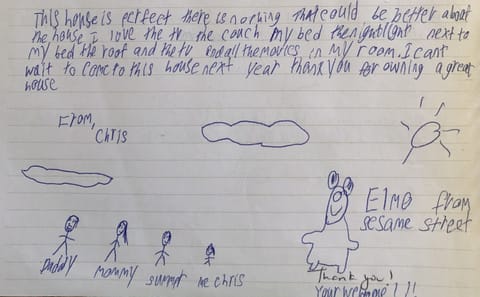 This house is perfect there is nothing that could be better about
the house I love the tv the couch my bed the nightlight next to
my bed the roof and the tv and all the movies in my room. I cant
wait to come to this house next year thank you for owning a great
house
From,
Chris
Elmo from
sesame street
Daddy
mommy
summer
me chris
Thank you!
Your welcome!!!